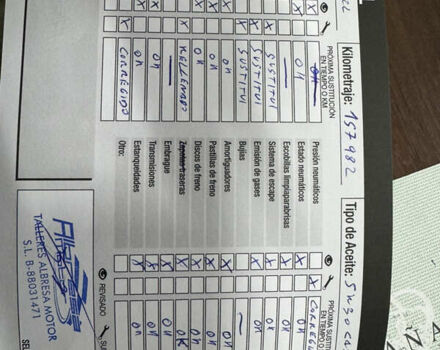 Kilometraje: 157982 Tipo de Aceite: 5W30
PRÓXIMA SUSTITUCIÓN
EN TIEMPO O KM
Presión neumáticos X CORREG
OK Estado neumáticos X OK
Escobillas limpiaparabrisas X OK
X SUSTITUI Sistema de escape X OK
X SUSTITUI Emisión de gases X OK
X SUSTITUI Bujías
OK Amortiguadores X OK
X OK Pastillas de freno X OK
X OK Discos de freno X OK
X RELLENADO Zapatas traseras X OK
Embrague X OK
OK Transmisiones X OK
X CORREGIDO Estanqueidades X OK
Otro:
REVISADO
TALLERES ALBRESA MOTOR
S.L. B-88031471